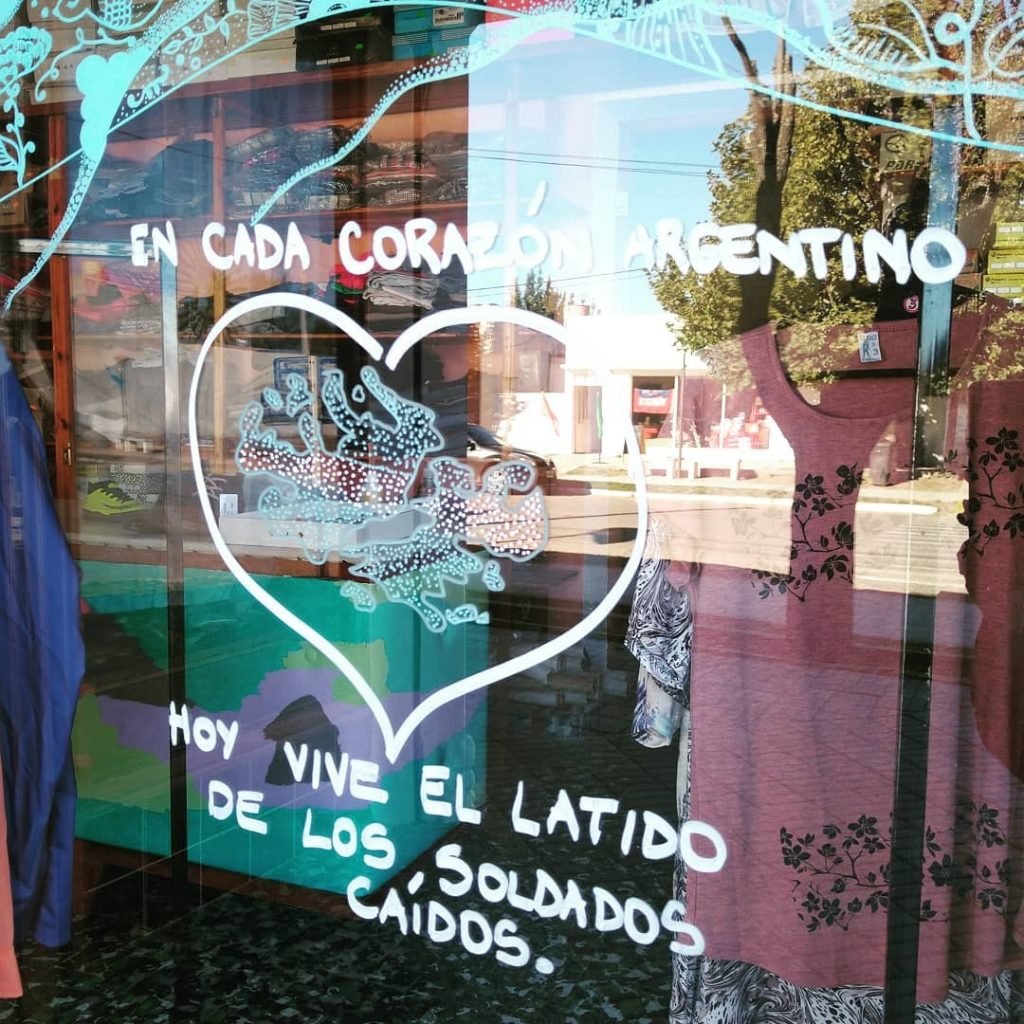 EN CADA CORAZÓN ARGENTINO
HOY VIVE EL LATIDO
DE LOS SOLDADOS
CAÍDOS.